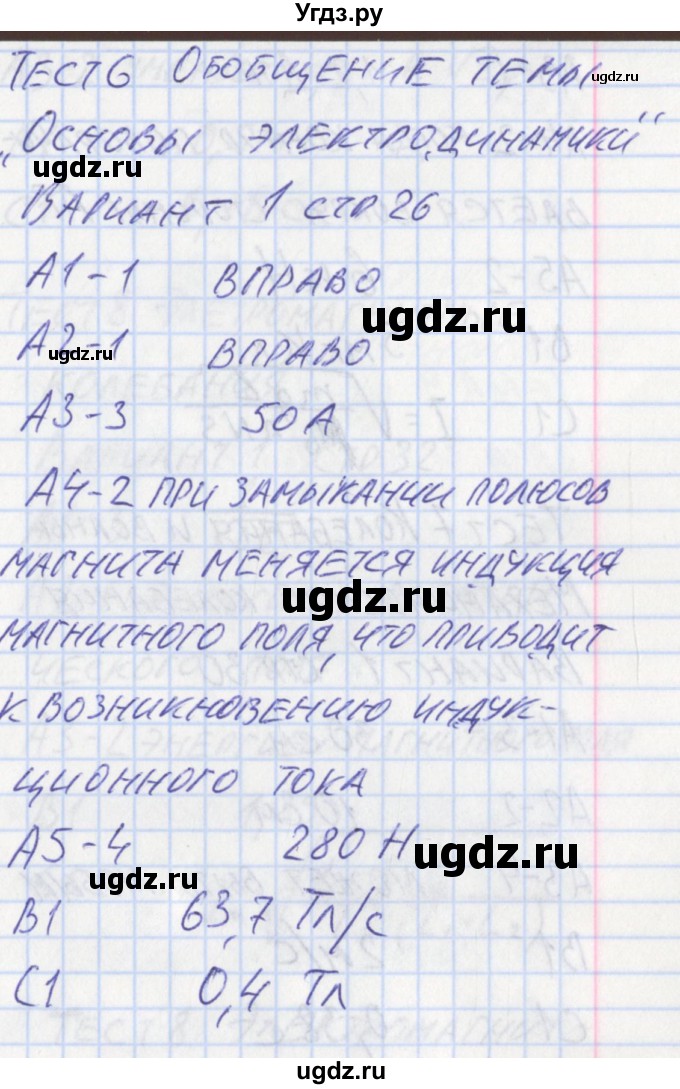 Угдз.ру
Тест 6 Обобщение темы
ugdz.ru
„Основы электродинамики"
ugdz.ru
Вариант 1 стр 26
А1-1 вправо
ugdz.ru
А2-1 вправо
ugdz.ru
А3-3 50 А
А4-2 при замыкании полюсов
магнита меняется индукция
ugdz.ru
магнитного поля, что приводит
к возникновению индук-
ционного тока
А5-4 280 Н
ugdz.ru
ugdz.ru
В1 63,7 Тл/с
С1 0,4 Тл
ugdz.ru